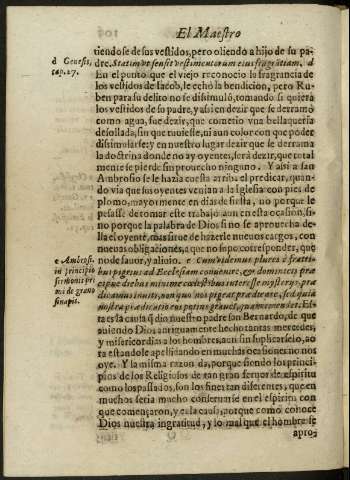 El Maestro
tiendose de sus vestidos, pero oliendo a hijo de su pa-
d Genesis, cap. 27.
dre. Statim vt sensit vestimentorum eius fragrãtiam. d
En el punto que el viejo reconocio la fragrancia de
los vestidos de Iacob, le echò la bendicion, pero Ru-
ben para su delito no se dissimulò, tomando si quiera
los vestidos de su padre, y assi en dezir que se derramò
como agua, fue dezir, que cometio vna bellaqueria
desollada, sin que tuuiesse, ni aun color con que poder
dissimularse: y en nuestro lugar dezir que se derrama
la doctrina donde no ay oyentes, serà dezir, que total
mente se pierde sin prouecho ninguno. Y assi a san
Ambrosio se le hazia cuesta arriba el predicar, quan-
do via que sus oyentes venian a la Iglesia con pies de
plomo, mayormente en dias de fiesta, no porque le
pesasse de tomar este trabajo aun en esta ocasion, si-
no porque la palabra de Dios si no se aprouecha de-
lla el oyente, mas sirue de hazerle nueuos cargos, con
nueuas obligaciones, a que no supo corresponder, que
e Ambrosi. in principio sermonis primi de grano sinapis.
no de fauor, y aliuio. e Cum videmus plures è fratri-
bus pigrius ad Ecclesiam conuenire, & dominicis præ
cipuè diebus minimè cœlestibus interesse mysterijs, præ
dicamus inuiti, non quo nos pigeat prædicare, sed quia
nostra prædicatio eos potius grauet, quam emendet. Es-
ta es la causa q̃ dio nuestro padre san Bernardo, de que
auiendo Dios antiguamente hecho tantas mercedes,
y misericordias a los hombres, aun sin suplicarselo, ao
ra estandose apellidando en muchas ocasiones no nos
oye. Y la misma razon da, porque siendo los princi-
pios de los Religiosos de tan gran feruor de espiritu
como los passados, son los fines tan diferentes, que en
muchos seria mucho conseruarse en el espiritu con
que començaron, y es la causa, porque como conoce
Dios nuestra ingratitud, y lo mal que el hombre se
apro-